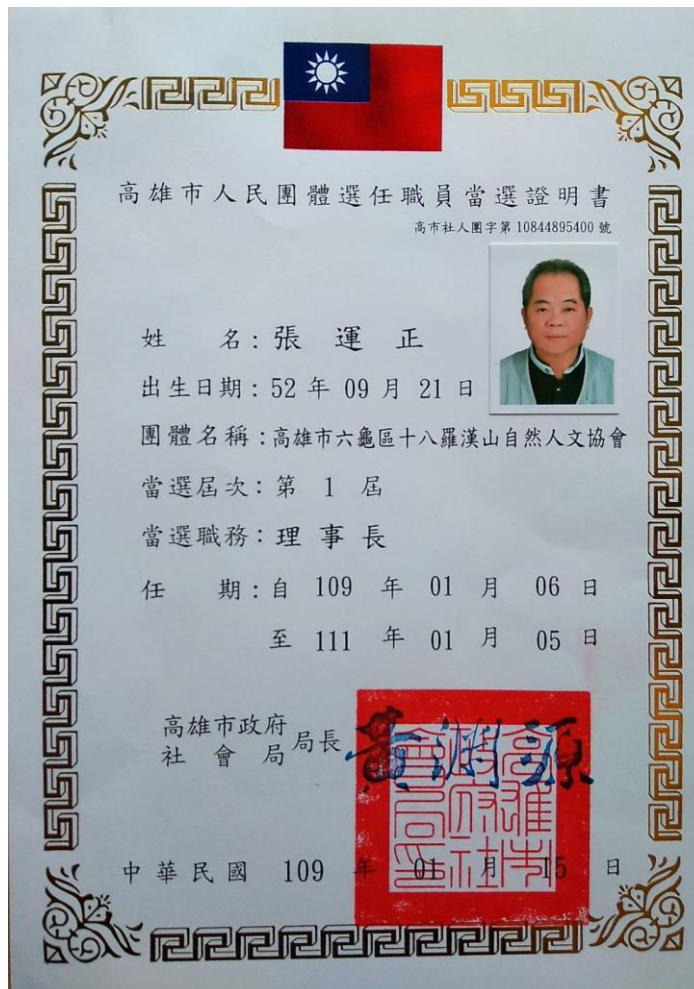 高雄市人民團體選任職員當選證明書
高市社人團字第 10844895400 號
姓 名：張 運 正
出生日期：52 年 09 月 21 日
團體名稱：高雄市六龜區十八羅漢山自然人文協會
當選屆次：第 1 屆
當選職務：理 事 長
任 期：自 109 年 01 月 06 日
至 111 年 01 月 05 日
高雄市政府
社 會 局 局長 黃淵源
高雄市
政府社
會局印
中 華 民 國 109 年 01 月 15 日